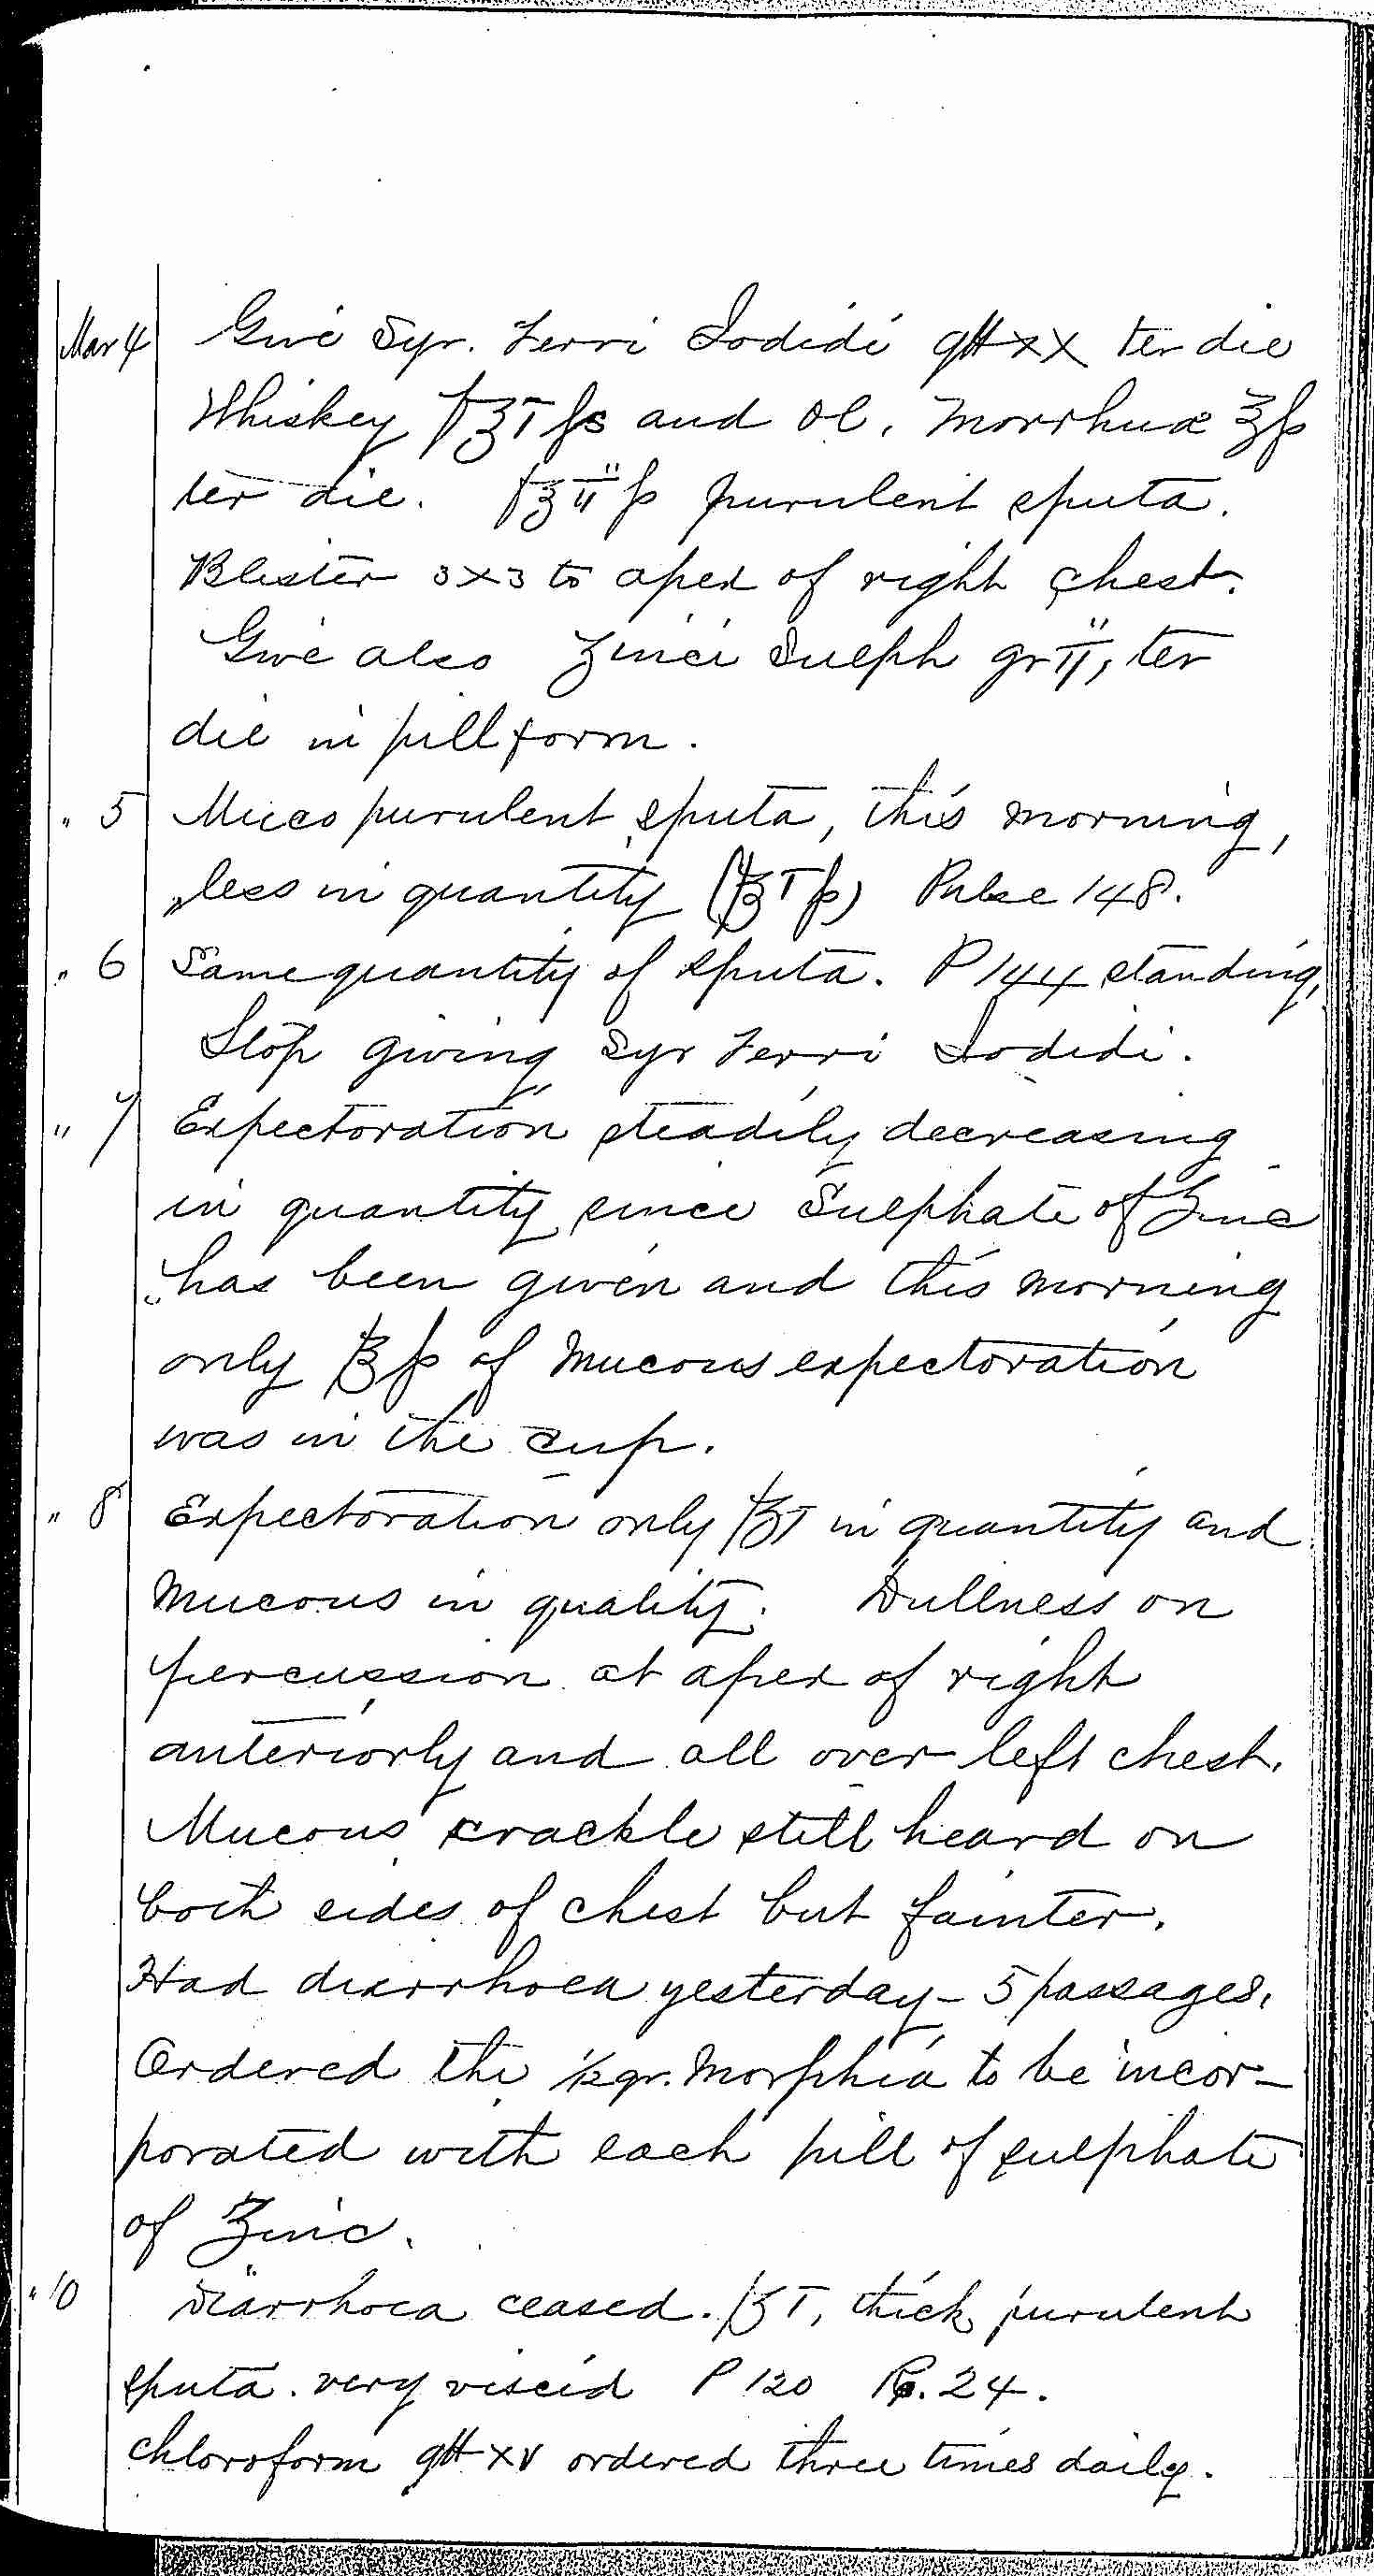 Mar 4 Give Syr. Ferri Iodidi gtt xx ter die
Whiskey f℥i fs and Ol. Morrhuæ ℥ fs
ter die. f℥ii fs purulent sputa.
Blister 3x3 to apex of right chest.
Give also Zinci Sulph gr ii, ter
die in pill form.
" 5 Muco purulent sputa, this morning,
less in quantity (f℥i fs) Pulse 148.
" 6 Same quantity of sputa. P 144 standing,
Stop giving Syr Ferri Iodidi.
" 7 Expectoration steadily decreasing
in quantity since Sulphate of Zinc
has been given and this morning
only f℥ fs of Mucous expectoration
was in the cup.
" 8 Expectoration only f℥i in quantity and
Mucous in quality. Dullness on
percussion at apex of right
anteriorly and all over left chest.
Mucous crackle still heard on
both sides of chest but fainter.
Had diarrhoea yesterday - 5 passages.
Ordered the ½ gr. Morphia to be incor-
porated with each pill of sulphate
of Zinc.
" 10 Diarrhoea ceased. f℥i, thick purulent
sputa. very viscid P 120 R. 24.
chloroform gtt xv ordered three times daily.